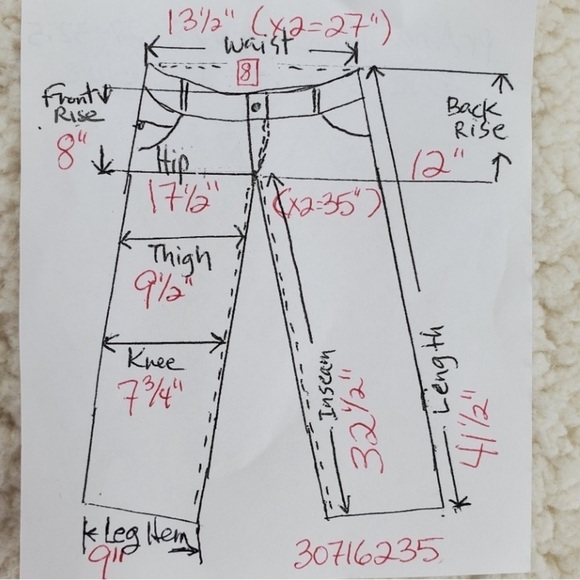 13 1/2" (x2=27")
Waist
8
Front
Rise
8"
Back
Rise
12"
Hip
17 1/2" (x2=35")
Thigh
9 1/2"
Knee
7 3/4"
Inseam
32 1/2"
Length
41 1/2"
Leg Hem
9"
30716235